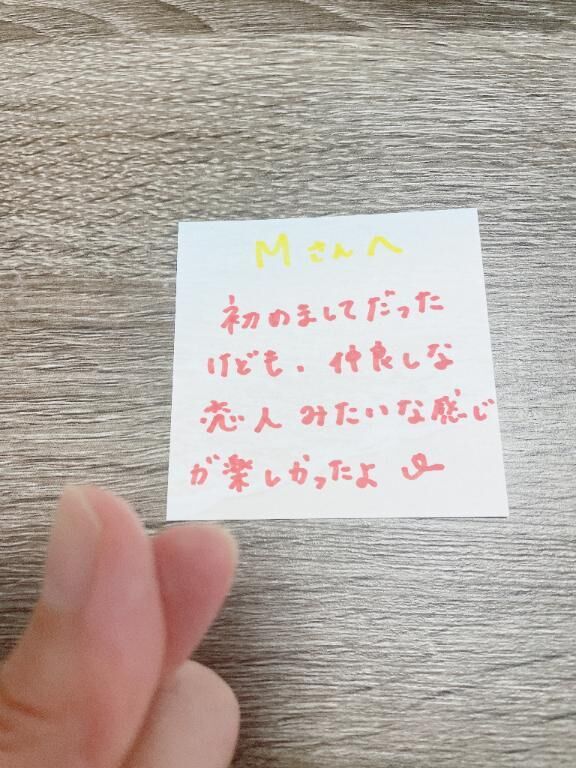 Mさんへ
初めましてだった
けども、仲良しな
恋人みたいな感じ
が楽しかったよ